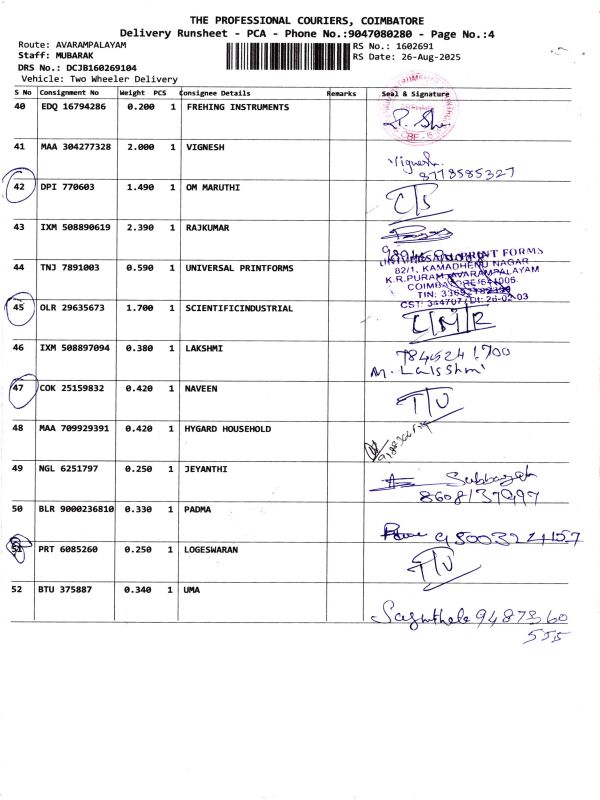 THE PROFESSIONAL COURIERS, COIMBATORE
Delivery Runsheet - PCA - Phone No.:9047080280 - Page No.:4
Route: AVARAMPALAYAM RS No.: 1602691
Staff: MUBARAK RS Date: 26-Aug-2025
DRS No.: DCJB160269104
Vehicle: Two Wheeler Delivery
S No Consignment No Weight PCS Consignee Details Remarks Seal & Signature
40 EDQ 16794286 0.200 1 FREHING INSTRUMENTS
41 MAA 304277328 2.000 1 VIGNESH Vignesh
8778585327
42 DPI 770603 1.490 1 OM MARUTHI C/S
43 IXM 508890619 2.390 1 RAJKUMAR
44 TNJ 7891003 0.590 1 UNIVERSAL PRINTFORMS
UNIVERSAL PRINT FORMS
82/1, KAMADHENU NAGAR
K.R.PURAM, AVARAMPALAYAM
COIMBATORE-641006.
TIN:
CST: 344707 / Dt: 26-02-03
45 OLR 29635673 1.700 1 SCIENTIFICINDUSTRIAL
46 IXM 508897094 0.380 1 LAKSHMI 7845241700
47 COK 25159832 0.420 1 NAVEEN T/U
48 MAA 709929391 0.420 1 HYGARD HOUSEHOLD
49 NGL 6251797 0.250 1 JEYANTHI
8608137997
50 BLR 9000236810 0.330 1 PADMA
51 PRT 6085260 0.250 1 LOGESWARAN T/U
52 BTU 375887 0.340 1 UMA 9487360
555